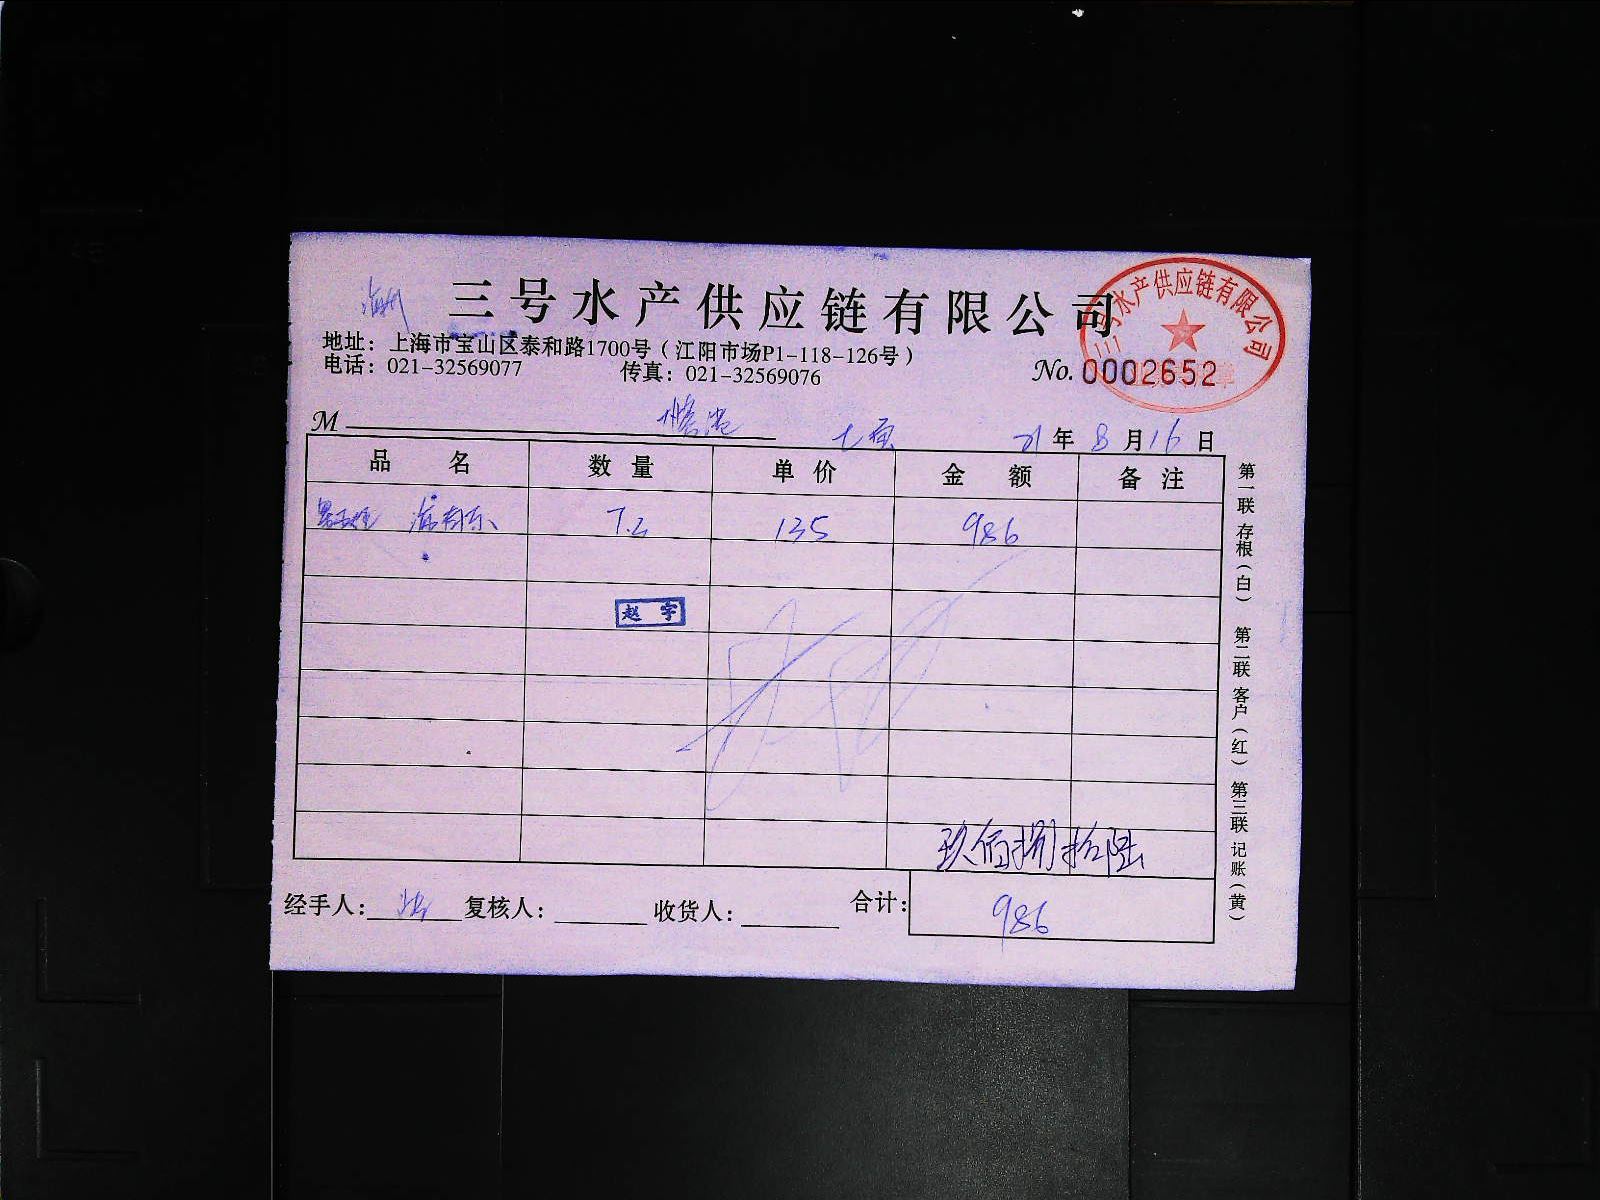 三号水产供应链有限公司
地址：上海市宝山区泰和路1700号（江阳市场P1-118-126号）
电话：021-32569077 传真：021-32569076
No. 0002652
号水产供应链有限公司
M
21年8月16日
品名 数量 单价 金额 备注
7.3 135 986
赵宇
玖佰捌拾陆
经手人： 复核人： 收货人： 合计：986
第一联 存根（白） 第二联 客户（红） 第三联 记账（黄）